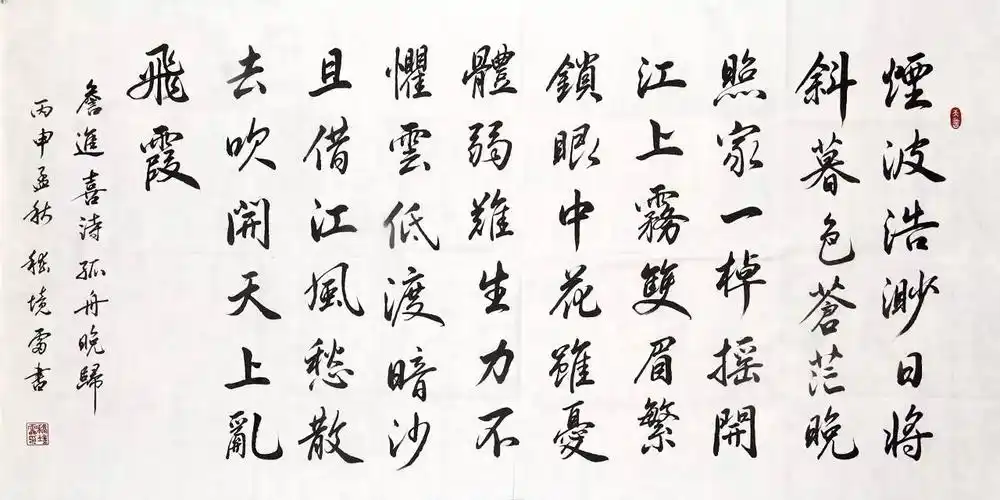 煙波浩渺日將
斜暮色蒼茫晚
照家一棹搖開
江上霧雙眉繁
鎖眼中花雖憂
體弱難生力不
懼雲低渡暗沙
且借江風愁散
去吹開天上亂
飛霞
詹進喜詩孤舟晚歸
丙申孟秋 嵇境雷書